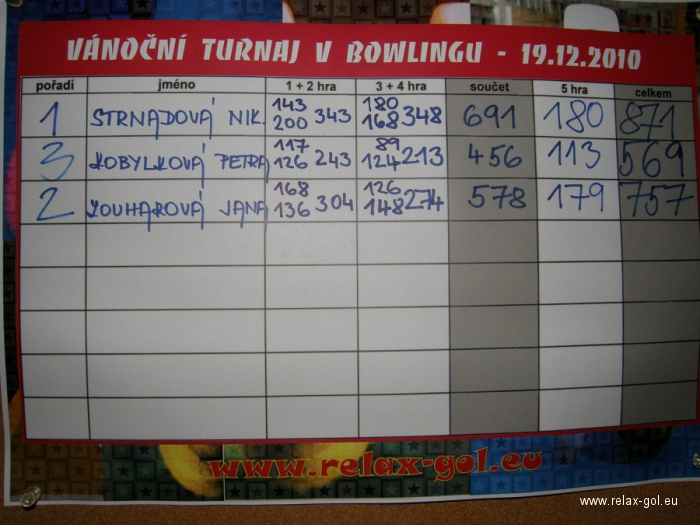 VÁNOČNÍ TURNAJ V BOWLINGU - 19.12.2010
pořadí jméno 1 + 2 hra 3 + 4 hra součet 5 hra celkem
1 STRNADOVÁ NIK. 143 200 343 180 168 348 691 180 871
3 KOBYLKOVÁ PETRA 117 126 243 89 124 213 456 113 569
2 ZOUHAROVÁ JANA 168 136 304 126 148 274 578 179 757
www.relax-gol.eu
www.relax-gol.eu